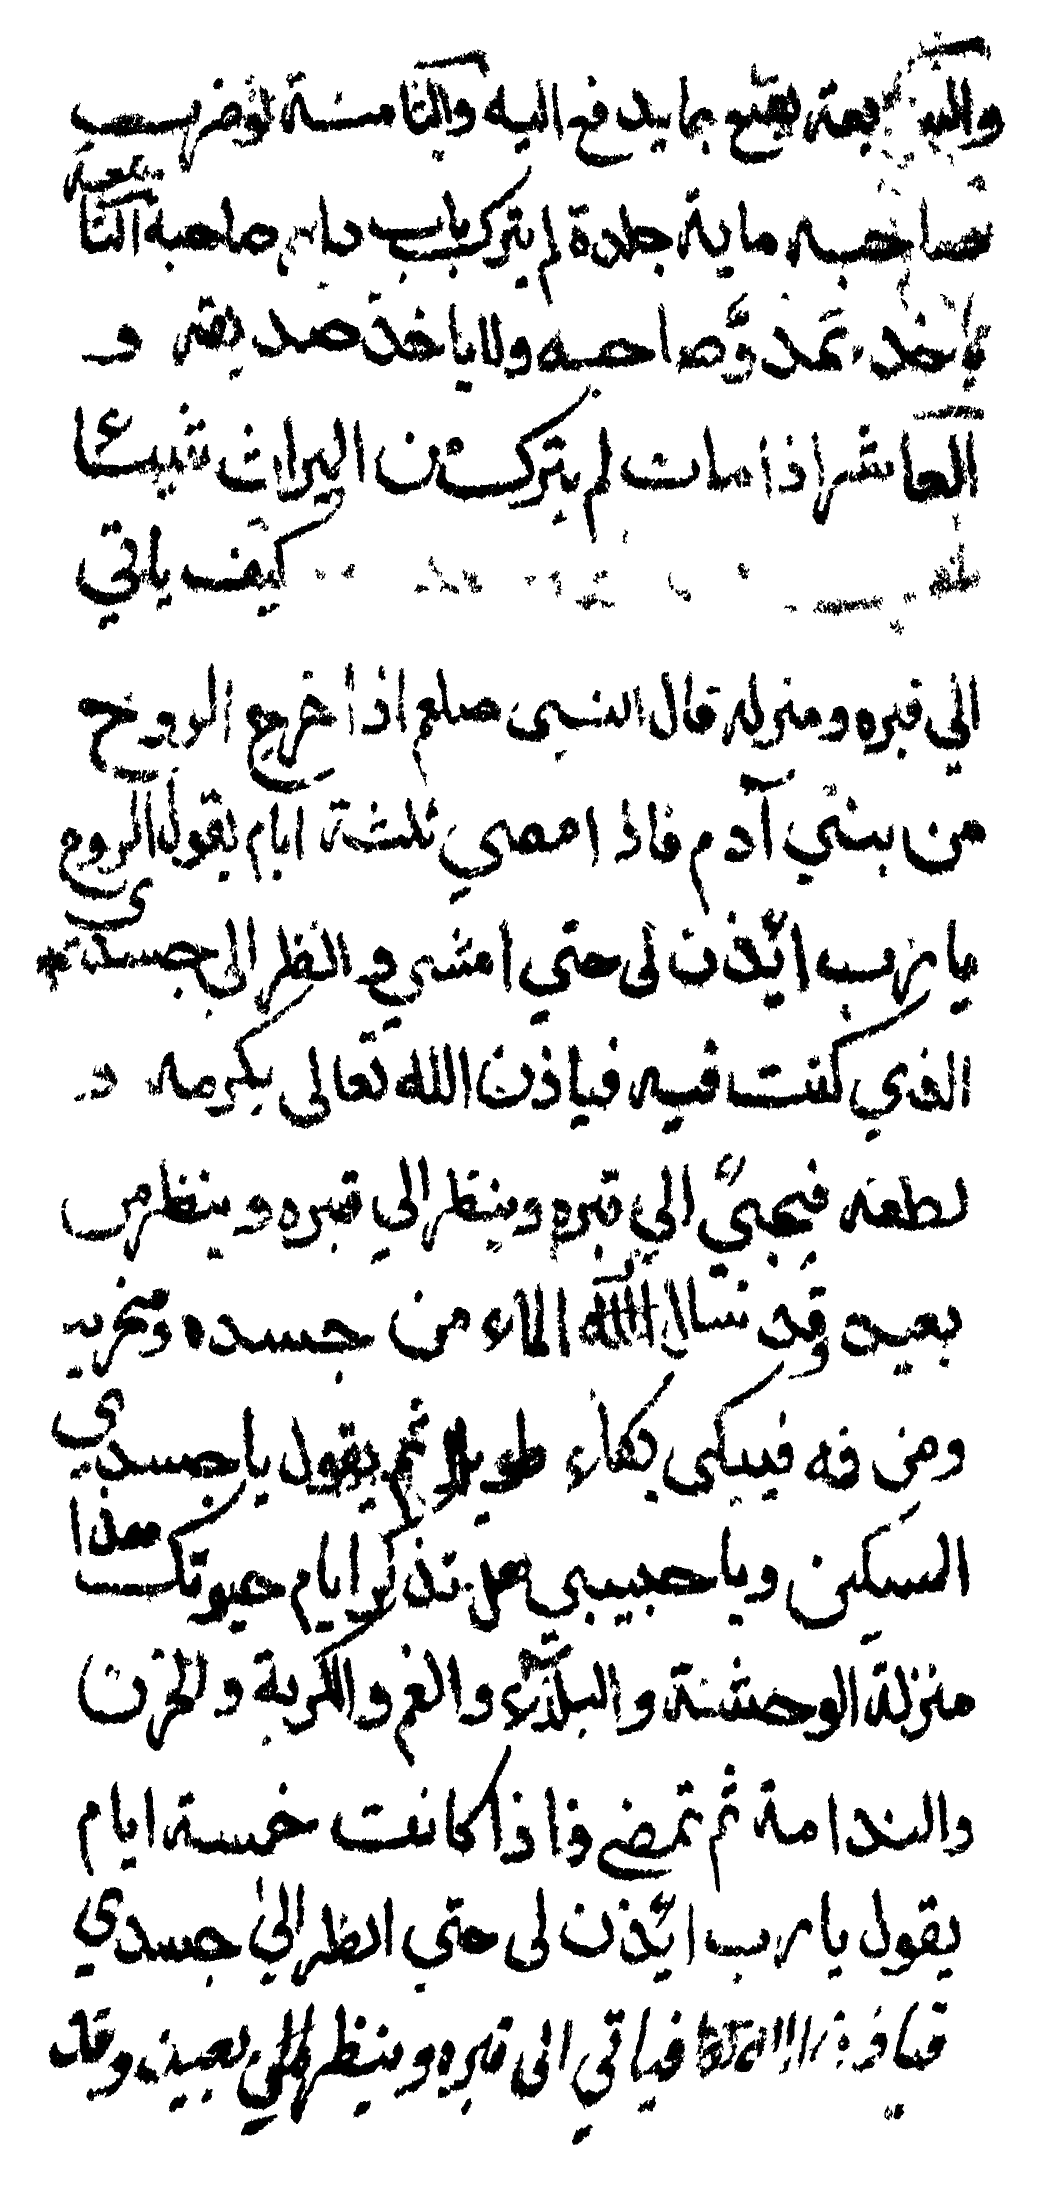 والسابعة يقنع بما يدفع اليه والثامنة لوضرب
صاحبه ماية جلدة لم يترك باب دار صاحبه التاسعة
ياخذ عدو صاحبه ولا ياخذ صديقه و
العاشر اذا مات لم يترك من الميراث شيئا
كيف ياتي
الي قبره ومنزله قال النبي صلعم اذا خرج الروح
من بني آدم فاذا امضي ثلثة ايام يقول الروح
يا رب ائذن لى حتي امشي و انظر الى جسدي
الذي كنت فيه فياذن الله تعالى بكرمه و
لطفه فيجئ الي قبره وينظر الي قبره وينظر من
بعيد وقد سال الماء من جسده ومنخريه
ومن فمه فيبكى بكاء طويلا ثم يقول يا جسدي
المسكين ويا حبيبي هل تذكر ايام حيوتك هذا
منزلة الوحشة والبلاء والغم والكربة والحزن
والندامة ثم تمضي فاذا كانت خمسة ايام
يقول يا رب ائذن لى حتي انظر الي جسدي
فياذن الله فياتي الى قبره وينظر الي بعيد وقد